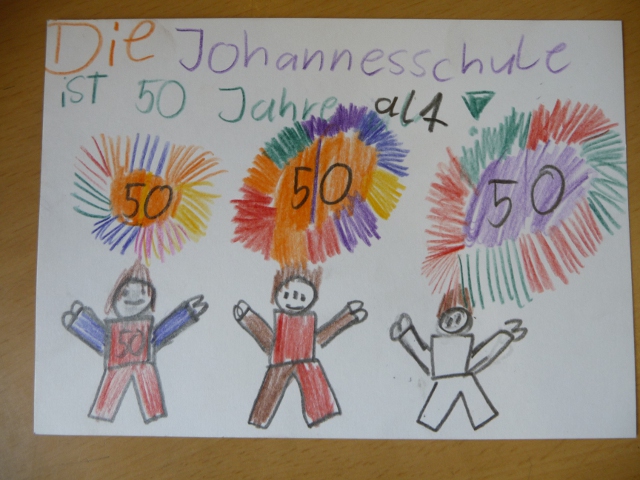 Die Johannesschule
ist 50 Jahre alt !
50
50
50
50